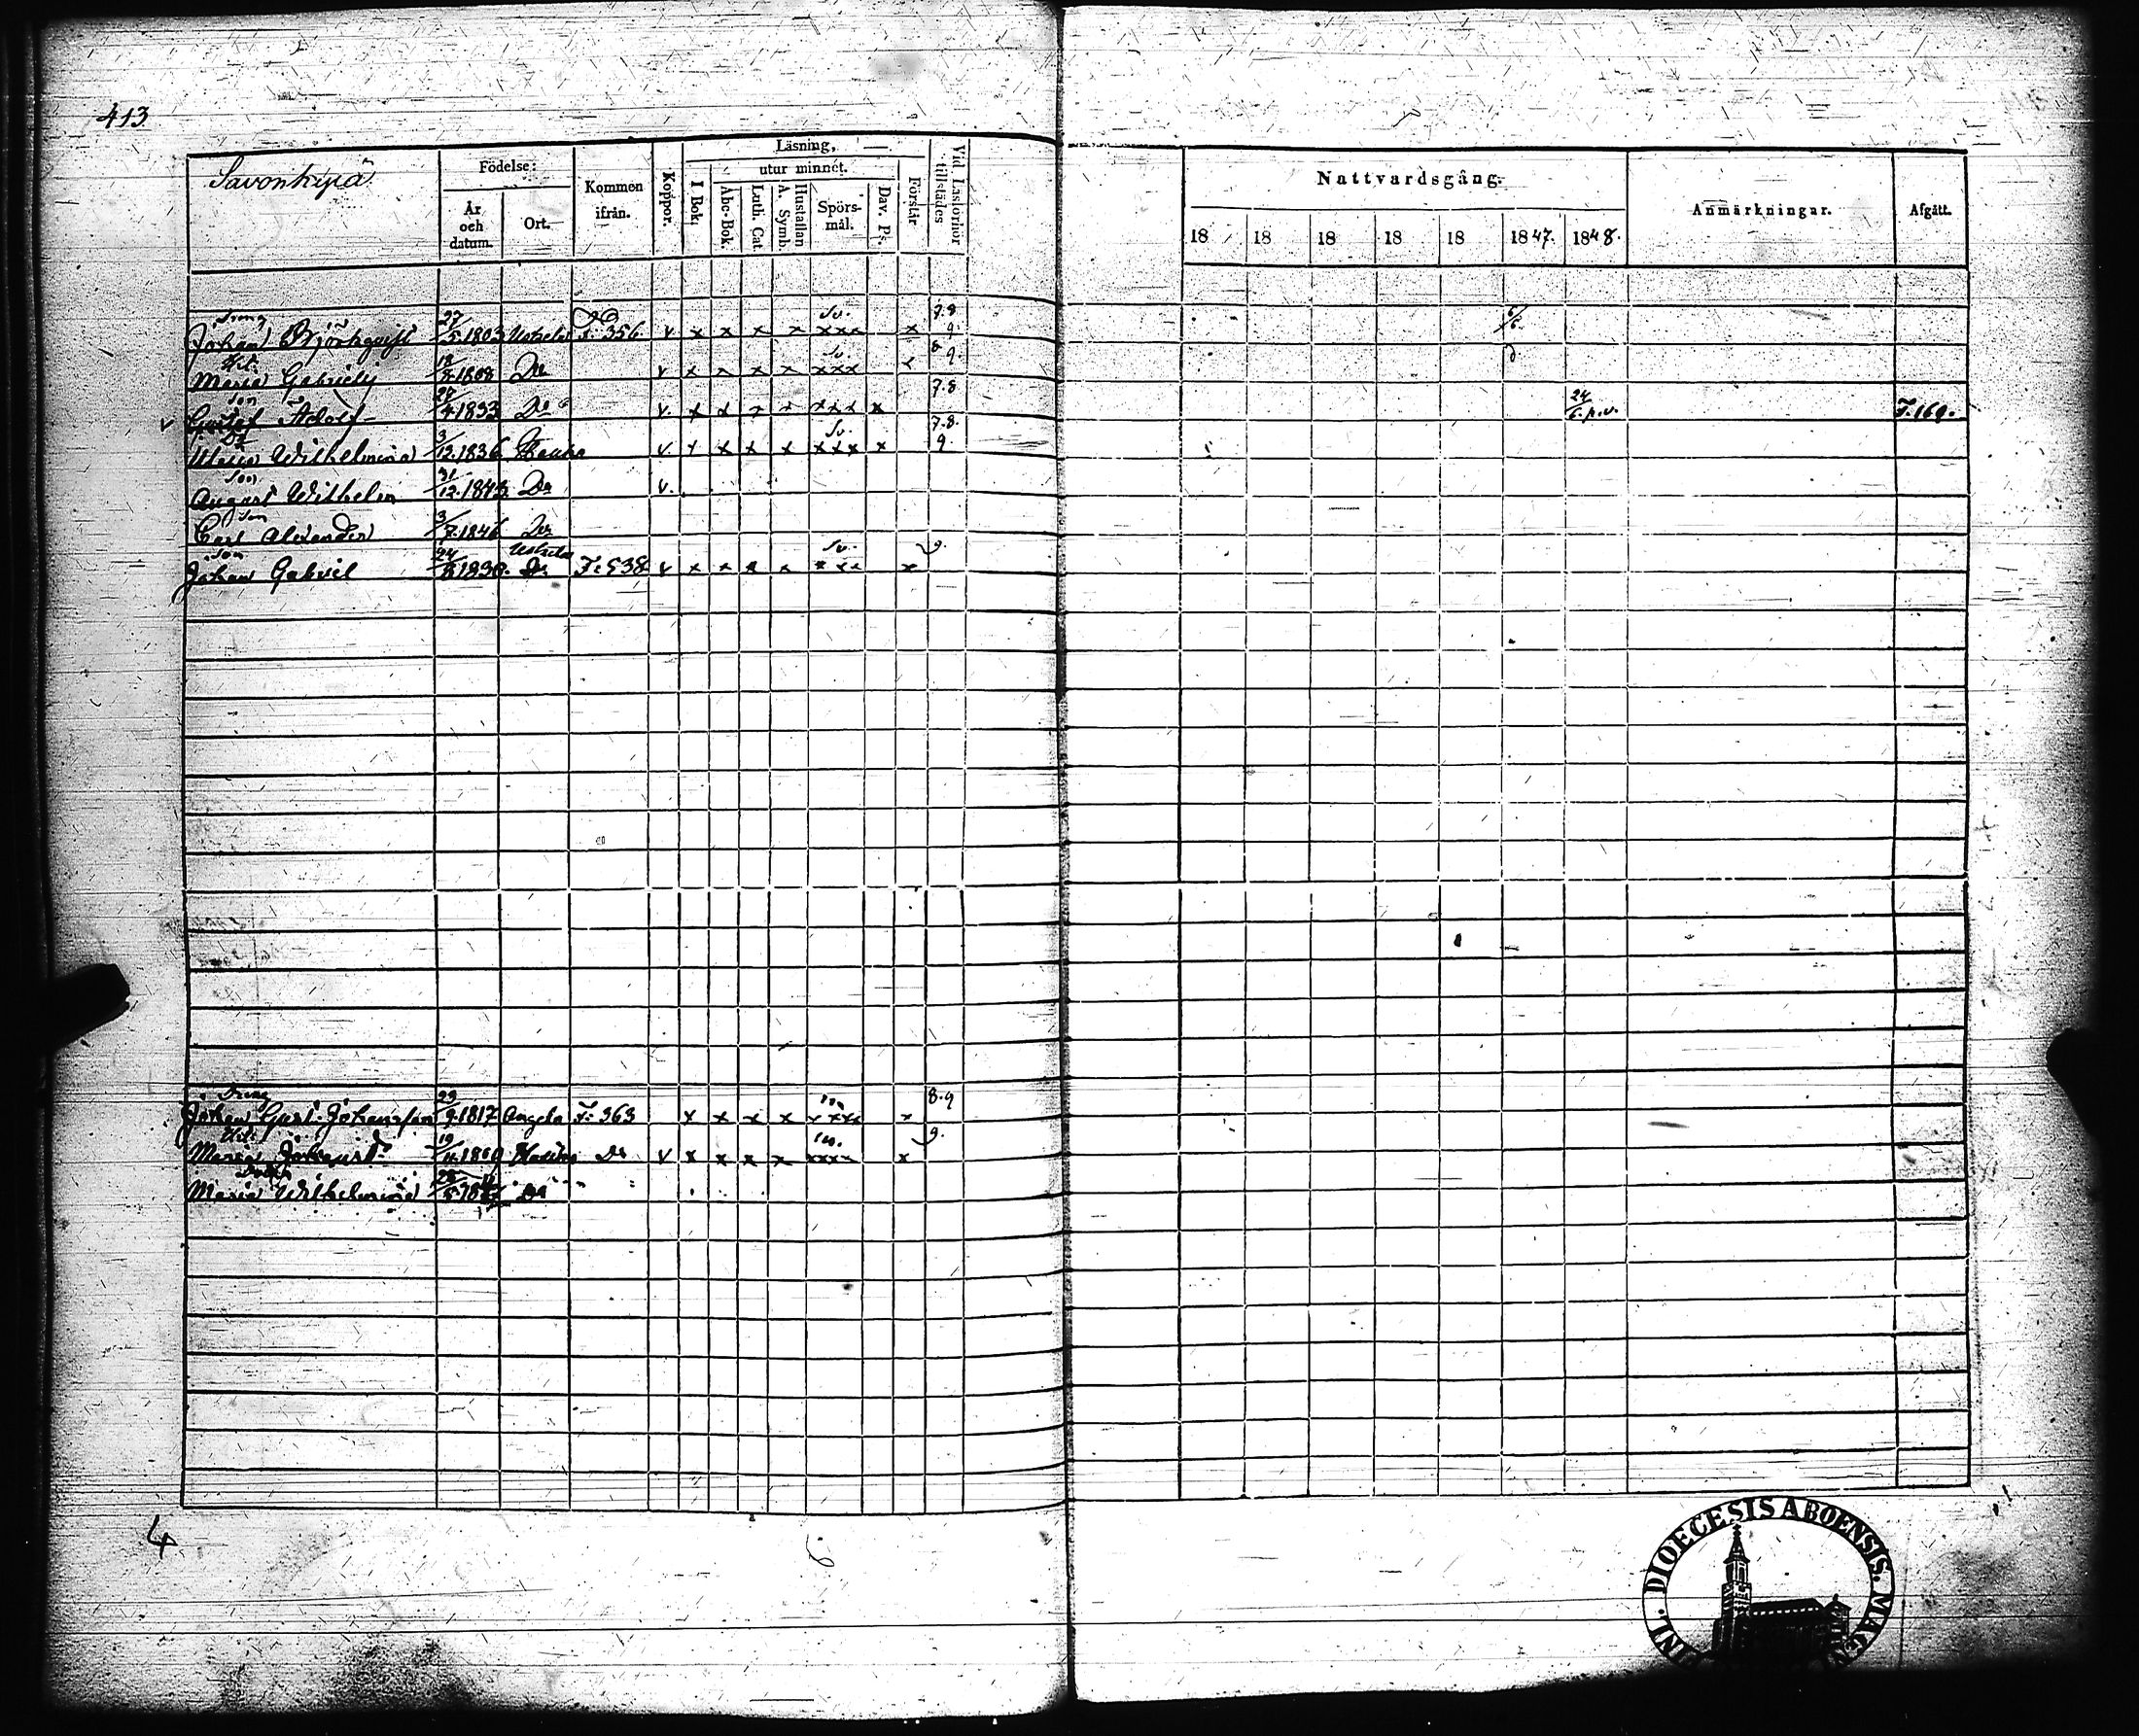 413
Savonkipä
Födelse:
År och datum.
Ort.
Kommen ifrån.
Koppor.
Läsning,
I Bok.
utur minnet.
Abc-Bok.
Luth. Cat.
A. Symb. Hustaflan
Spörs-mål.
Dav. Ps.
Förstår
Vid Läsförhör tillstädes
Nattvardsgång.
18 18 18 18 18 1847. 1848.
Anmärkningar.
Afgått.
Dreng Sv. 7.8
Johan Björkqvist 27/5 1803 356 v x x x x xxx x 9.
Hu: Sv. 8
Maria Gabrielsj 18/8 1808 Do v x x x x xxx x 9.
Son 7.8
Gustaf Adolf 28/4 1833 Do v. x x x x xxx x 24/6 p.v. F.169.
Dr Sv. 7.8.
Maria Wilhelmina 3/12.1836 v. x x x x xxx x 9.
Son
August Wilhelm 31/12.1843 Do v.
Son
Carl Alexander 3/7.1846 Do
Son Sv. 9.
Johan Gabriel 24/8 1830. F:538 v x x x x xxx x
Dreng 8.9
Johan Gust. Johansson 23/9.1817 Angela F: 363 x x x x xxxx x
Hu: 9.
Maria 19/11. Do v x x x x xxxx x
Dotter
Maria Wilhelmina Do
4
FINL. DIOECESIS ABOENSIS. MAGN